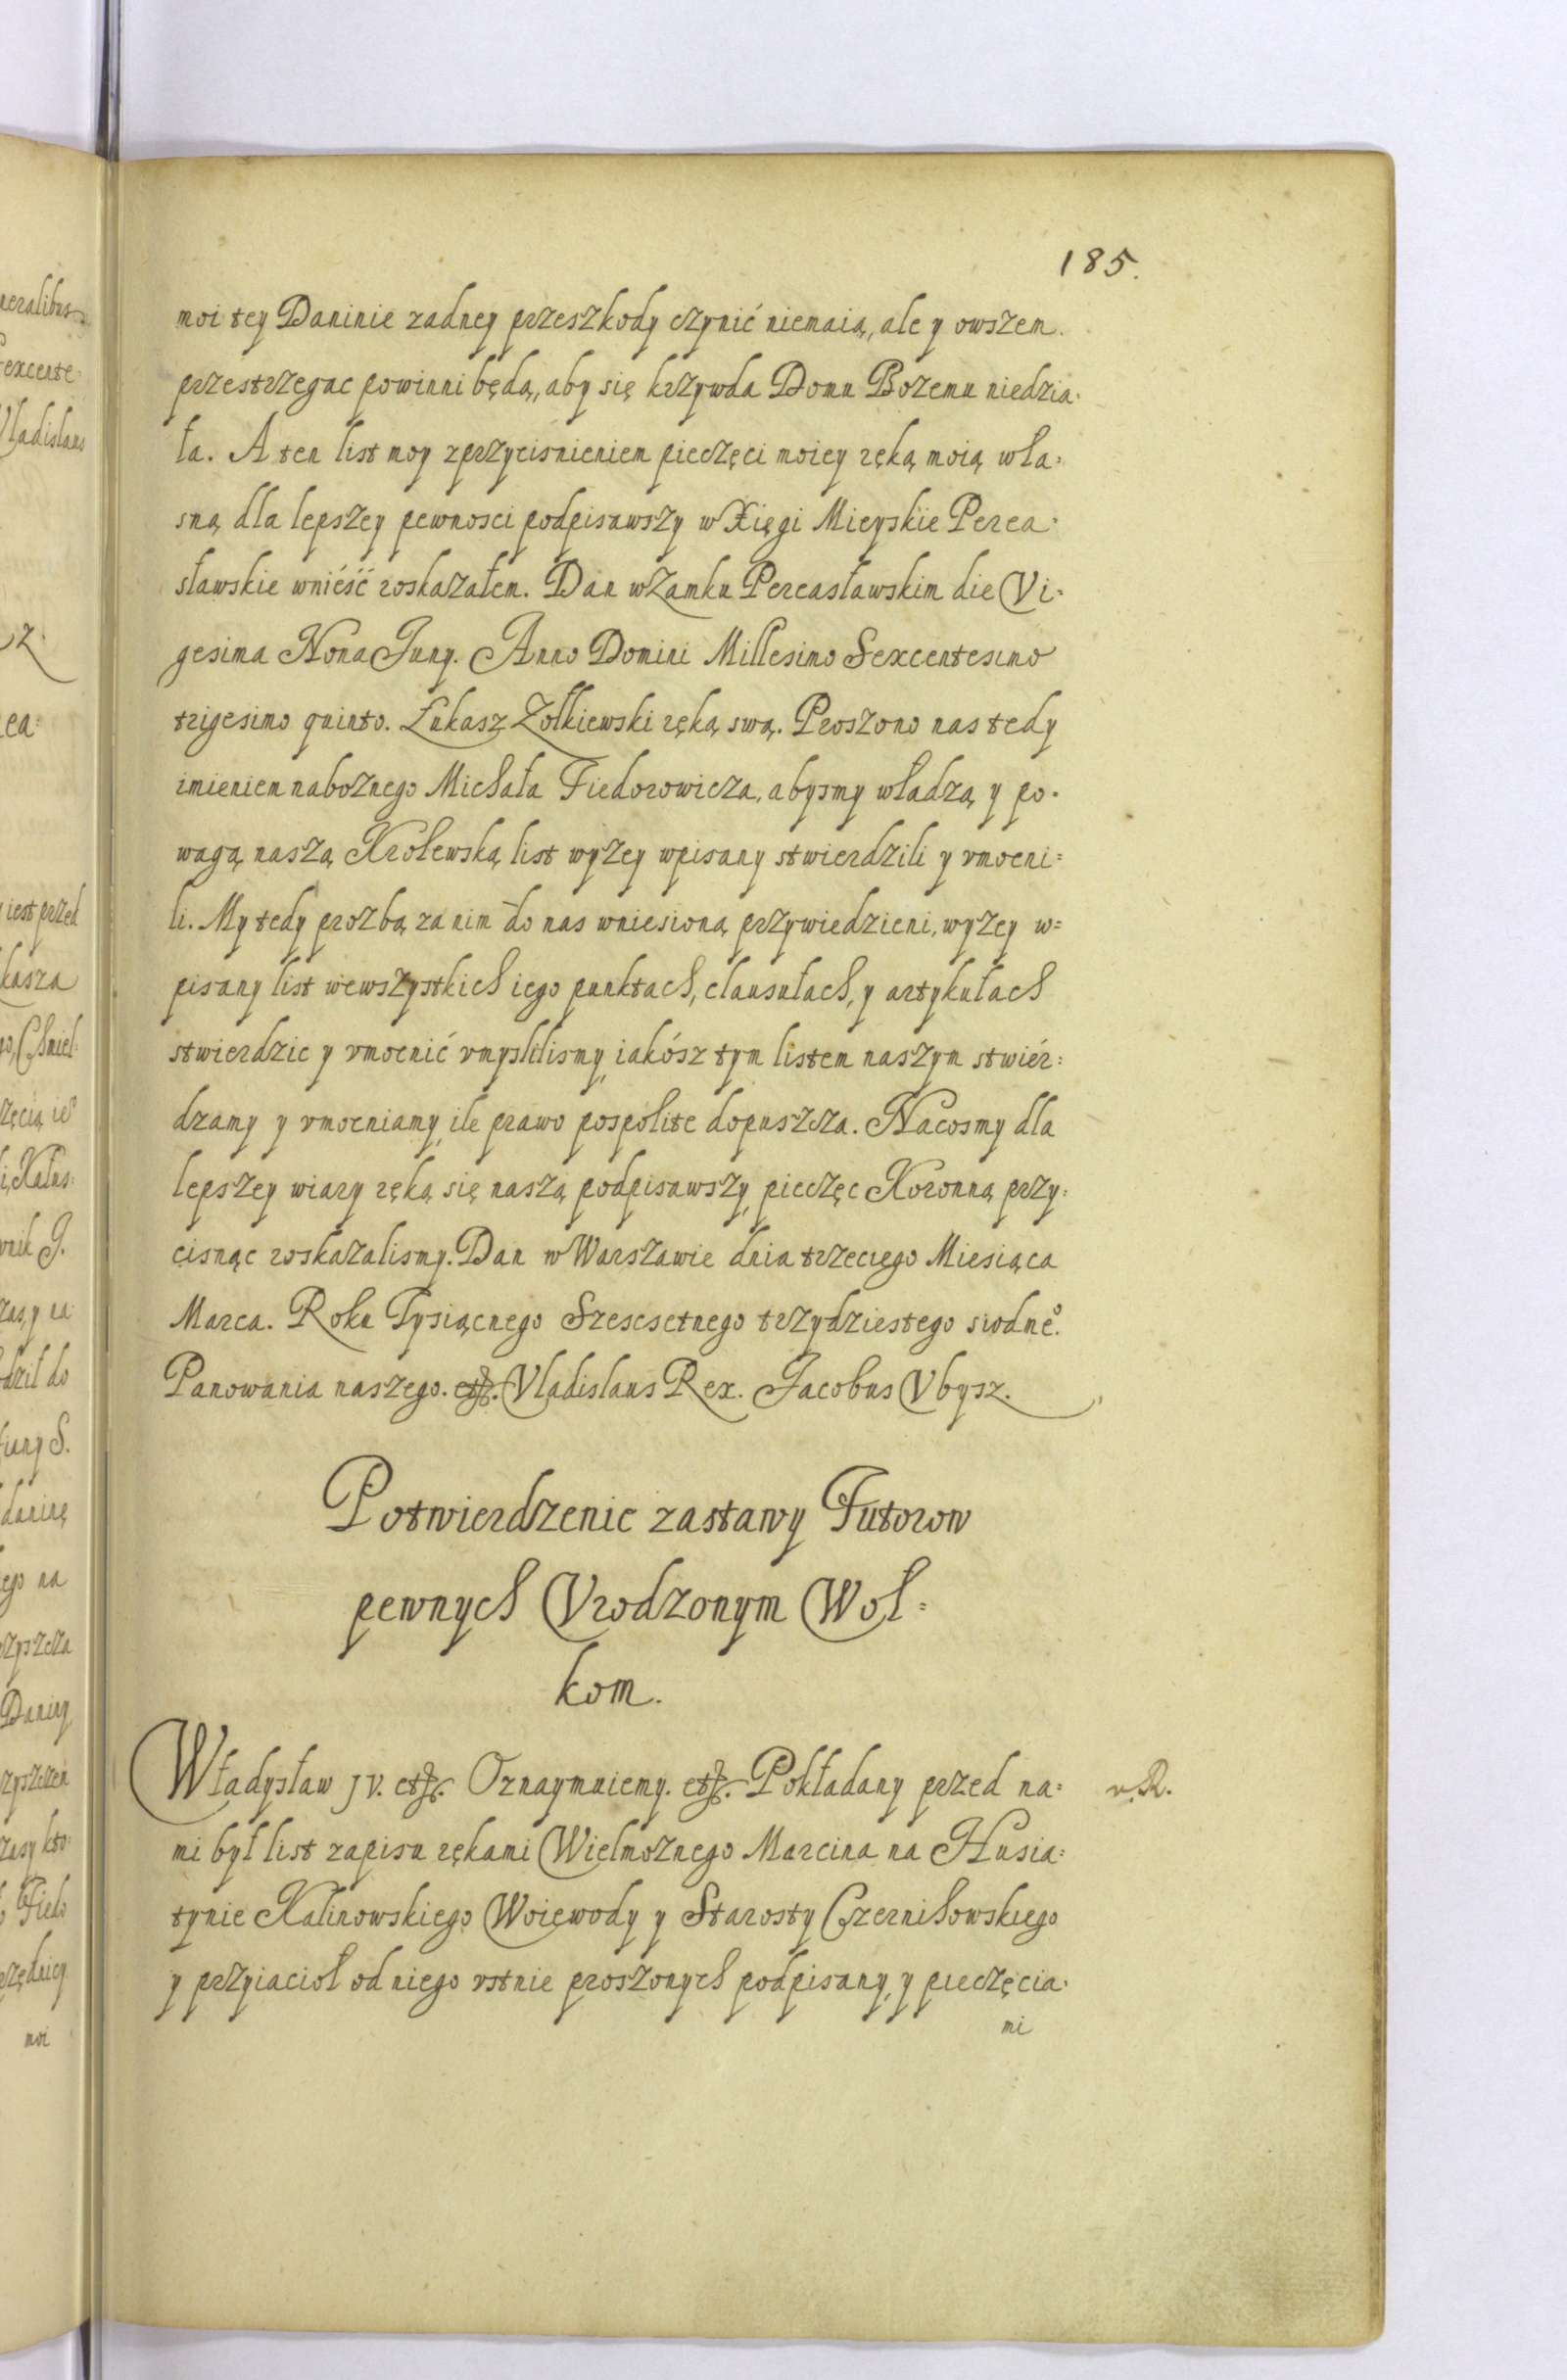 185.
moi tey Daninie zadney przeszkody czynić niemaią, ale y owszem.
przestrzegac powinni będą, aby się krzywda Domu Bozemu niedzia:
ła. A ten list moy z przycisnieniem pieczęci moiey ręką moią wła:
sną dla lepszey pewnosci podpisawszy w Xięgi Mieyskie Perea:
sławskie wnieść roskazałem. Dan w Zamku Pereasławskim die Vi:
gesima Nona Juny. Anno Domini Millesimo Sexcentesimo
trigesimo quinto. Łukasz Zołkiewski ręką swą. Proszono nas tedy
imieniem naboznego Michała Fiedorowicza, abysmy władzą y po:
wagą naszą Krolewską list wyzey wpisany stwierdzili y vmocni:
li. My tedy prozbą za nim do nas wniesioną przywiedzieni, wyzey w:
pisany list wewszystkich iego punktach, clausułach, y artykułach
stwierdzic y vmocnić vmyslilismy, iakósz tym listem naszym stwiér:
dzamy y vmocniamy, ile prawo pospolite dopuszcza. Nacosmy dla
lepszey wiary ręką się naszą podpisawszy, pieczęc Koronną przy:
cisnąc roskazalismy. Dan w Warszawie dnia trzeciego Miesiąca
Marca. Roku Tysiącnego Szescsetnego trzydziestego siodmeº.
Panowania naszego. etc. Vladislaus Rex. Jacobus Vbysz.
Potwierdzenie zastawy Futorow
pewnych Vrodzonym Woł:
kom.
Władysław JV. etc. Oznaymuiemy. etc. Pokładany przed na: v. R.
mi był list zapisu rękami Wielmoznego Marcina na Husia:
tynie Kalinowskiego Woiewody y Starosty Czernihowskiego
y przyiacioł od niego vstnie proszonych podpisany, y pieczęcia:
mi